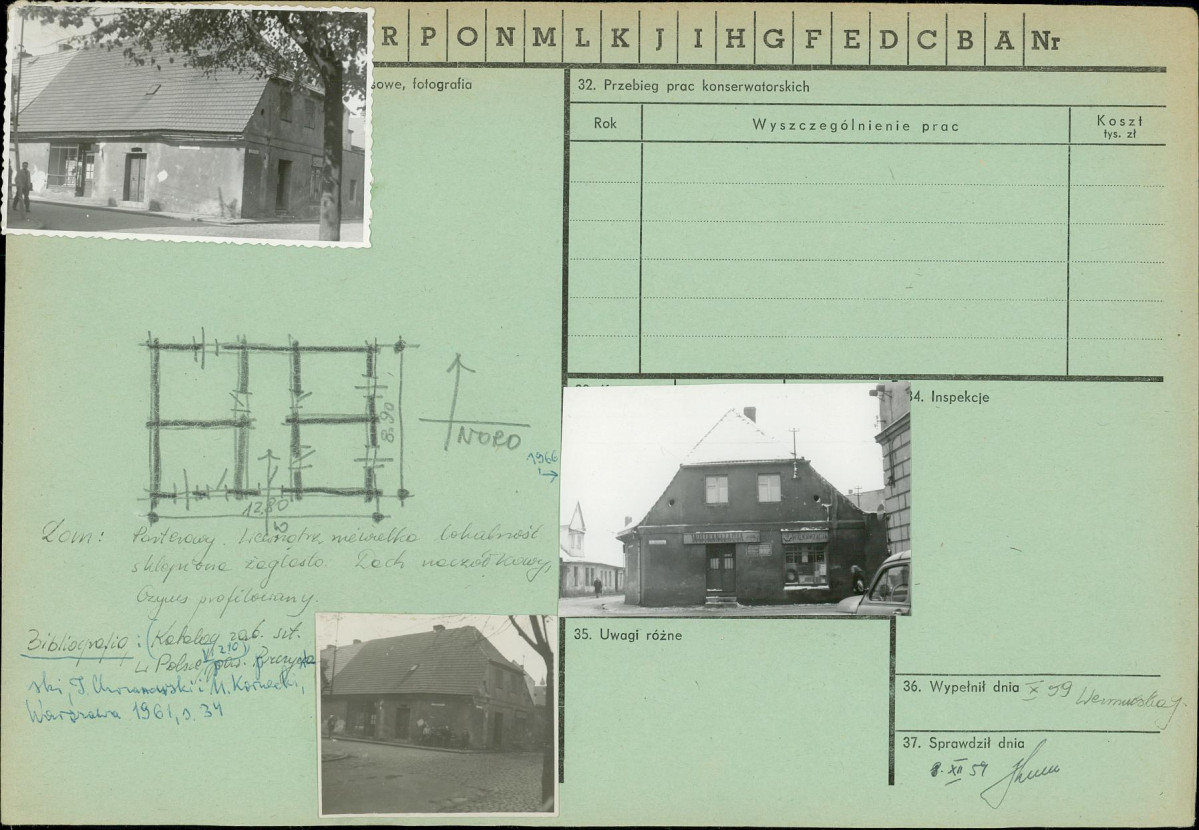 R P O N M L K J I H G F E D C B A Nr
sowe, fotografia
32. Przebieg prac konserwatorskich
Rok
Wyszczególnienie prac
Koszt
tys. zł
8.90
NORD
12.80
1966
34. Inspekcje
Dom: Parterowy. niewielka
sklepienie żaglasto. Dach naczółkowy,
Gzyms profilowany.
Bibliografia: (Katalog zab. szt.
w Polsce,
ski, T. Chrzanowski i M. Kornecki,
Warszawa 1961, s. 34
35. Uwagi różne
36. Wypełnił dnia X 59
37. Sprawdził dnia
8. XII 59